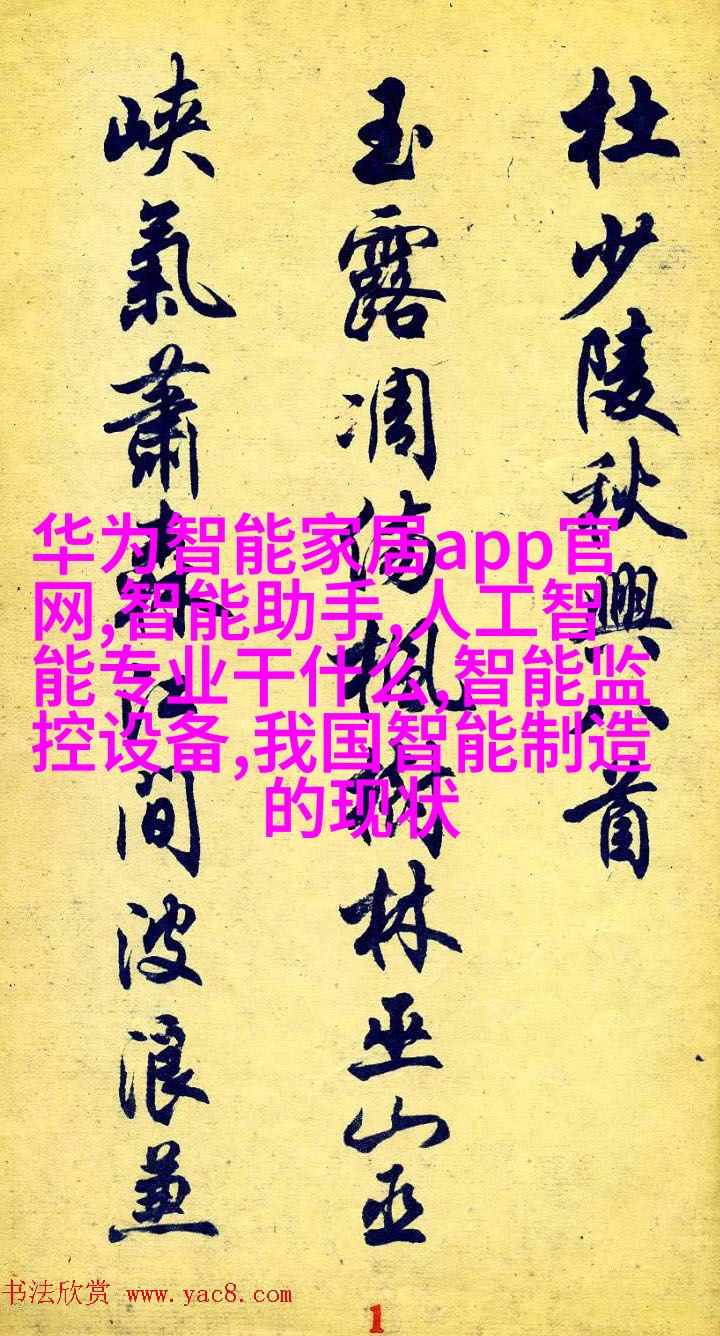 杜少陵秋興八首
玉露凋傷楓樹林巫山巫
峽氣蕭森江間波浪兼
华为智能家居app官
网,智能助手,人工智
能专业干什么,智能监
控设备,我国智能制造
的现状
书法欣赏 www.yac8.com
1